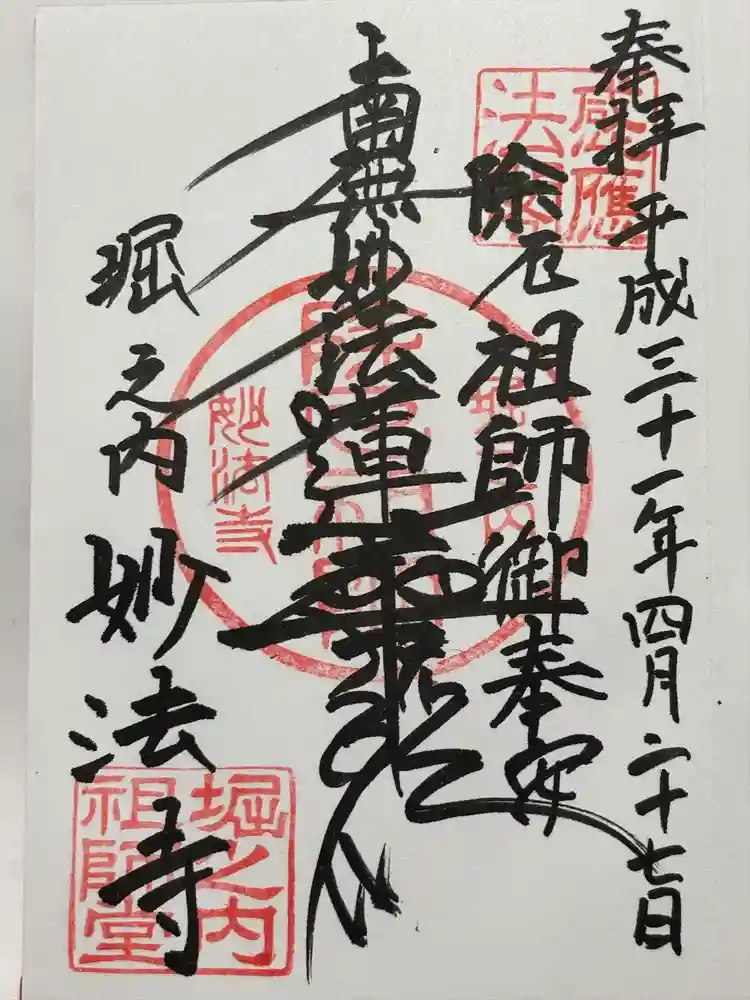 奉拝 平成三十一年四月二十七日
除厄祖師御奉安
南無妙法蓮華経
堀之内
妙法寺
妙法寺
堀之内
祖師堂